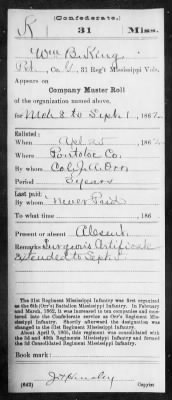 (Confederate.)
K 31 Miss.
Wm B. King
Pvt., Co. G, 31 Reg't Mississippi Vols.
Appears on
Company Muster Roll
of the organization named above,
for Mch 8 to Sept 1, 1862
Enlisted:
When Apl 25, 186
Where Pontotoc Co.
By whom Col. J. A. Orr
Period 3 years
Last paid:
By whom Never Paid
To what time , 186
Present or absent Absent
Remarks: Surgeon's Certificate
extended to Sept
The 31st Regiment Mississippi Infantry was first organized
as the 6th (Orr's) Battalion Mississippi Infantry. In February
and March, 1862, it was increased to ten companies and mus-
tered into the Confederate service as the Regiment Missis-
sippi Infantry. Shortly afterward the designation was
changed to the 31st Regiment Mississippi Infantry.
About April 9, 1865, this regiment was consolidated with
the 3d and 40th Regiments Mississippi Infantry and formed
the 3d Consolidated Regiment Mississippi Infantry.
Book mark:
(642) Copyist.